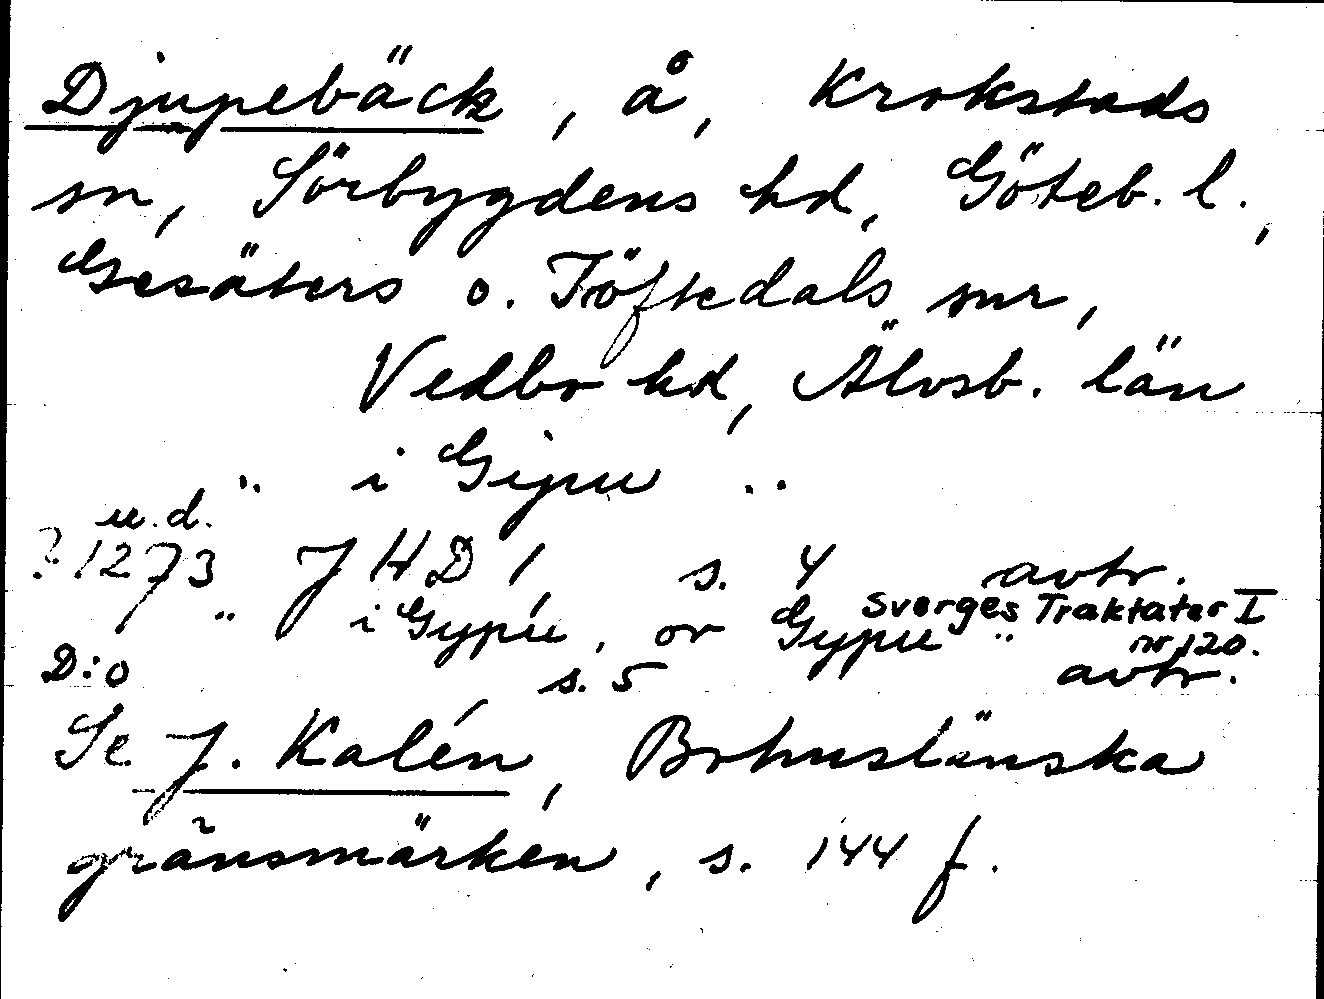 Djupebäck, å, Krokstads
sn, Sörbygdens hd, Göteb. l.,
Gesäters o. Töftedals snr,
Vedbo hd, Älvsb. län
" i Gipu "
u.d.
? 1273 JHD 1, s. 4 avtr.
Sverges Traktater I
nr 120.
" i Gypu, or Gypu "
D:o s. 5 avtr.
Se J. Kalén, Bohuslänska
gränsmärken, s. 144 f.